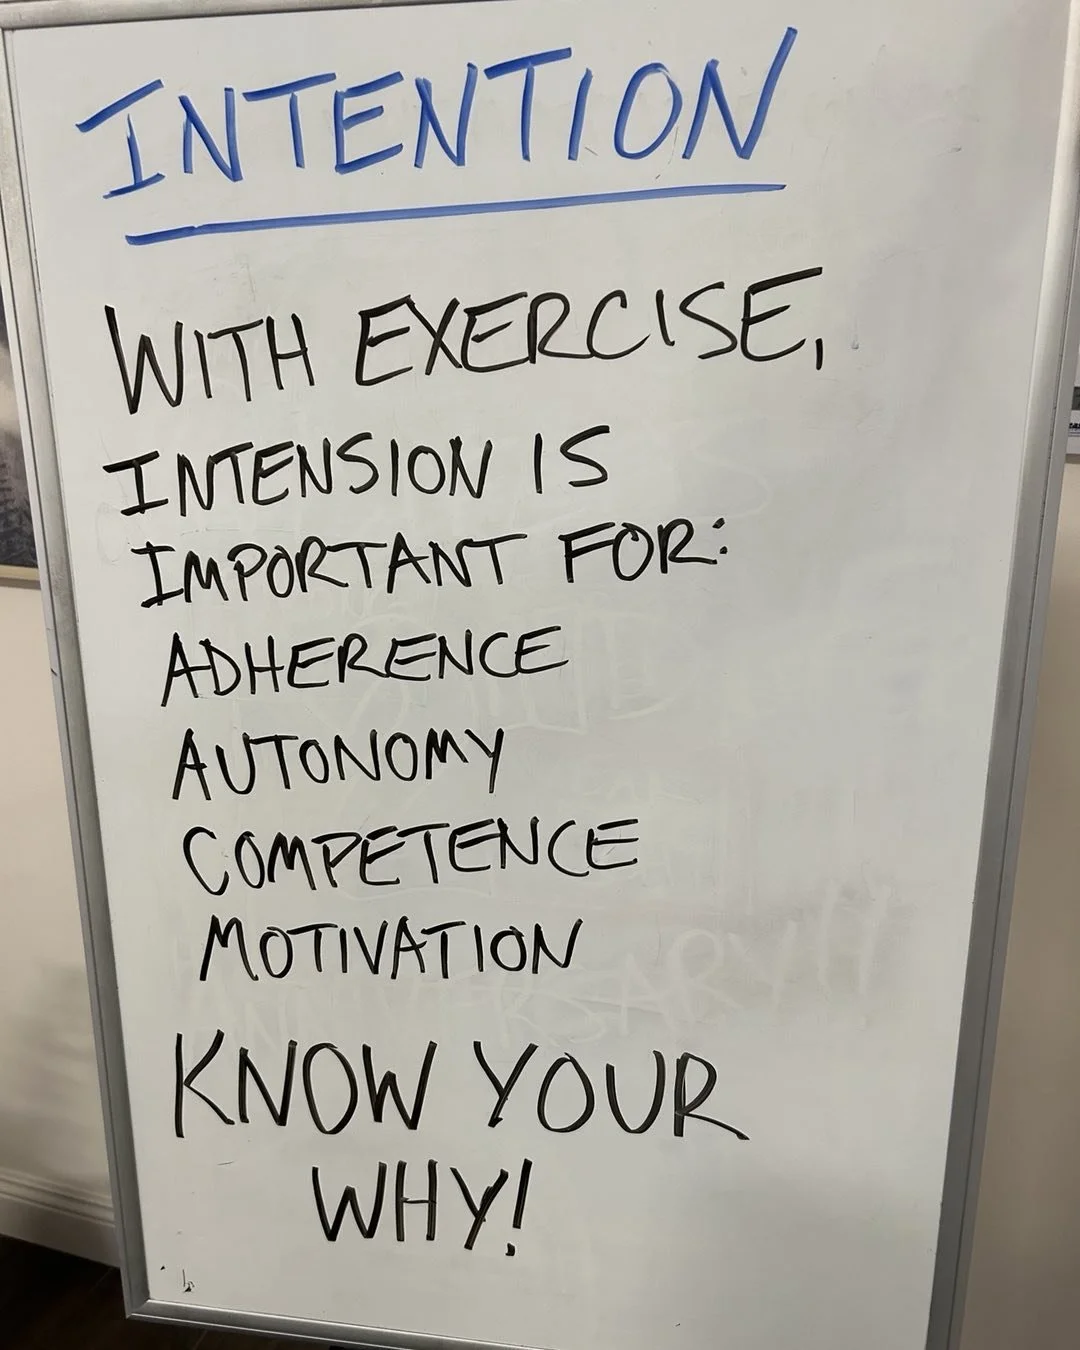 INTENTION
WITH EXERCISE,
INTENSION IS
IMPORTANT FOR:
ADHERENCE
AUTONOMY
COMPETENCE
MOTIVATION
ANNIVERSARY!!
KNOW YOUR
WHY!